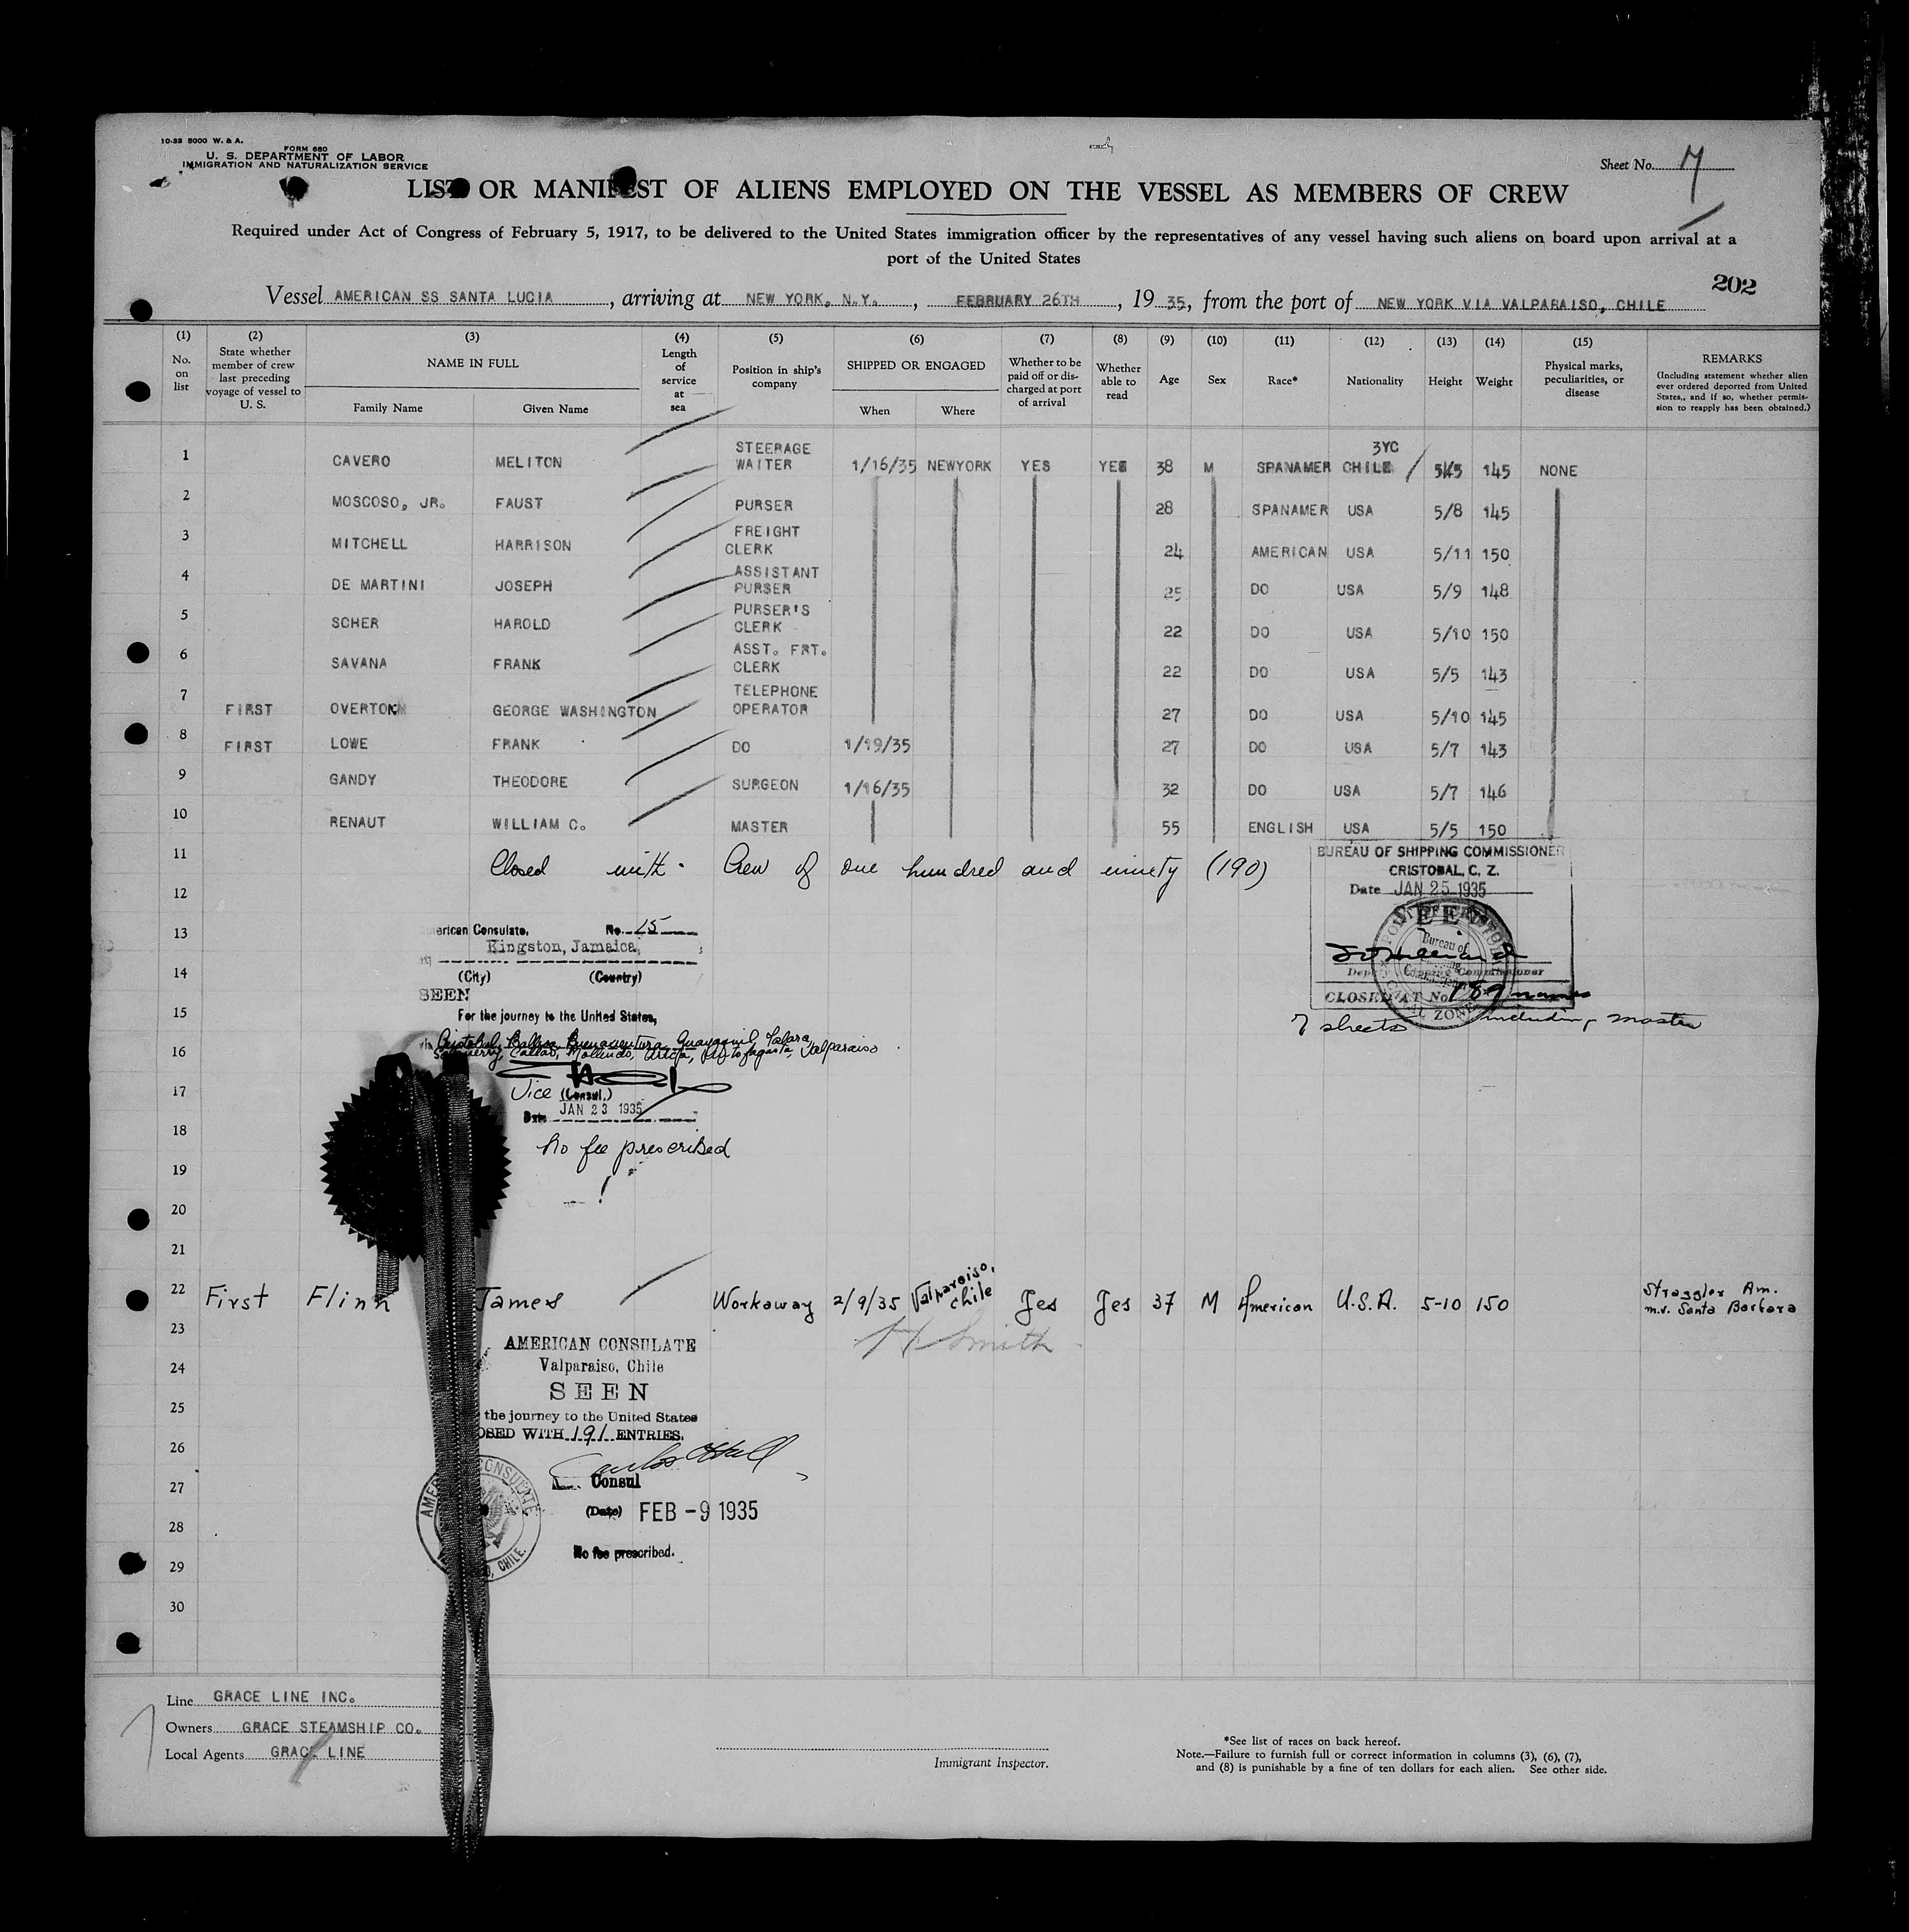 10-33 5000 W. & A.
FORM 680
U. S. DEPARTMENT OF LABOR
IMMIGRATION AND NATURALIZATION SERVICE
Sheet No. 7
LIST OR MANIFEST OF ALIENS EMPLOYED ON THE VESSEL AS MEMBERS OF CREW
Required under Act of Congress of February 5, 1917, to be delivered to the United States immigration officer by the representatives of any vessel having such aliens on board upon arrival at a
port of the United States
202
Vessel AMERICAN SS SANTA LUCIA, arriving at NEW YORK, N.Y., FEBRUARY 26TH, 1935, from the port of NEW YORK VIA VALPARAISO, CHILE
(1) (2) (3) (4) (5) (6) (7) (8) (9) (10) (11) (12) (13) (14) (15)
No. on list
State whether member of crew last preceding voyage of vessel to U. S.
NAME IN FULL
Family Name
Given Name
Length of service at sea
Position in ship's company
SHIPPED OR ENGAGED
When
Where
Whether to be paid off or discharged at port of arrival
Whether able to read
Age
Sex
Race*
Nationality
Height
Weight
Physical marks, peculiarities, or disease
REMARKS
(Including statement whether alien ever ordered deported from United States, and if so, whether permission to reapply has been obtained.)
3YC
1 CAVERO MELITON STEERAGE WAITER 1/16/35 NEWYORK YES YES 38 M SPANAMER CHILE 5/5 145 NONE
2 MOSCOSO, JR. FAUST PURSER 28 SPANAMER USA 5/8 145
3 MITCHELL HARRISON FREIGHT CLERK 24 AMERICAN USA 5/11 150
4 DE MARTINI JOSEPH ASSISTANT PURSER 25 DO USA 5/9 148
5 SCHER HAROLD PURSER'S CLERK 22 DO USA 5/10 150
6 SAVANA FRANK ASST. FRT. CLERK 22 DO USA 5/5 143
7 FIRST OVERTON GEORGE WASHINGTON TELEPHONE OPERATOR 27 DO USA 5/10 145
8 FIRST LOWE FRANK DO 1/19/35 27 DO USA 5/7 143
9 GANDY THEODORE SURGEON 1/16/35 32 DO USA 5/7 146
10 RENAUT WILLIAM C. MASTER 55 ENGLISH USA 5/5 150
11 Closed with Crew of one hundred and ninety (190)
BUREAU OF SHIPPING COMMISSIONER
CRISTOBAL, C. Z.
Date JAN 25 1935
SEEN
Bureau of
Deputy Shipping Commissioner
CLOSED AT No 189 names
7 sheets including master
12
13
14
15
16
17
18
19
20
21
American Consulate, No. 15
Kingston, Jamaica
(City) (Country)
SEEN
For the journey to the United States,
via Cristobal, Balboa, Buenaventura, Guayaquil, Talara,
Salaverry, Callao, Mollendo, Arica, Antofagasta, Valparaiso
Vice (Consul.)
Date JAN 23 1935
No fee prescribed
22 First Flinn James Workaway 2/9/35 Valparaiso, Chile Yes Yes 37 M American U.S.A. 5-10 150 Straggler Am. m.v. Santa Barbara
H Smith
23
24
25
26
27
28
29
30
AMERICAN CONSULATE
Valparaiso, Chile
SEEN
the journey to the United States
OSED WITH 191 ENTRIES.
Consul
AMERICAN CONSULATE
CHILE.
(Date) FEB -9 1935
No fee prescribed.
Line GRACE LINE INC.
Owners GRACE STEAMSHIP CO.
Local Agents GRACE LINE
Immigrant Inspector.
*See list of races on back hereof.
Note.—Failure to furnish full or correct information in columns (3), (6), (7),
and (8) is punishable by a fine of ten dollars for each alien. See other side.